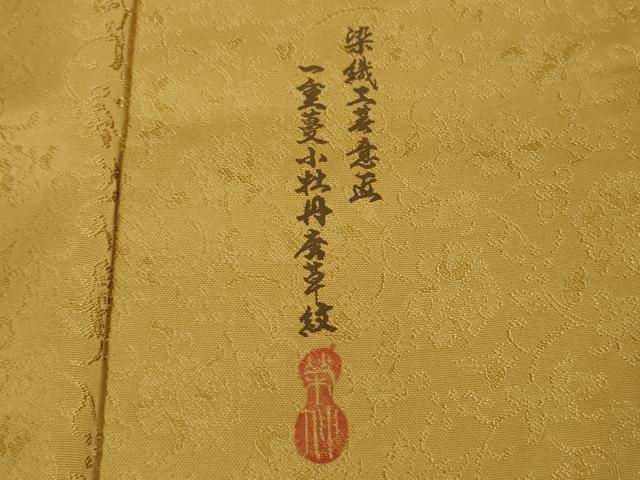 染織工芸意匠
一重蔓小牡丹唐草紋